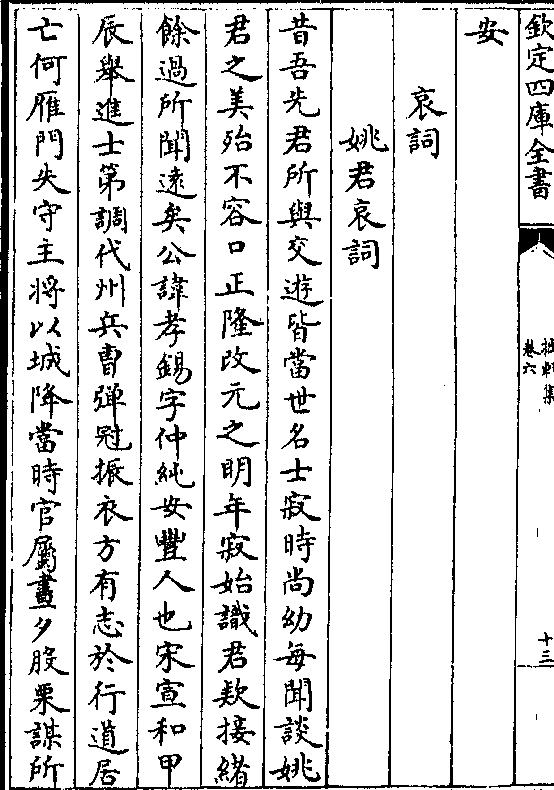 欽定四庫全書
拙軒集
卷六
十三
安
哀詞
姚君哀詞
昔吾先君所與交遊皆當世名士寂時尚幼每聞談姚
君之美殆不容口正隆改元之明年寂始識君欵接緒
餘過所聞遠矣公諱孝錫字仲純安豐人也宋宣和甲
辰舉進士第調代州兵曹彈冠振衣方有志於行道居
亡何雁門失守主將以城降當時官屬晝夕股栗謀所